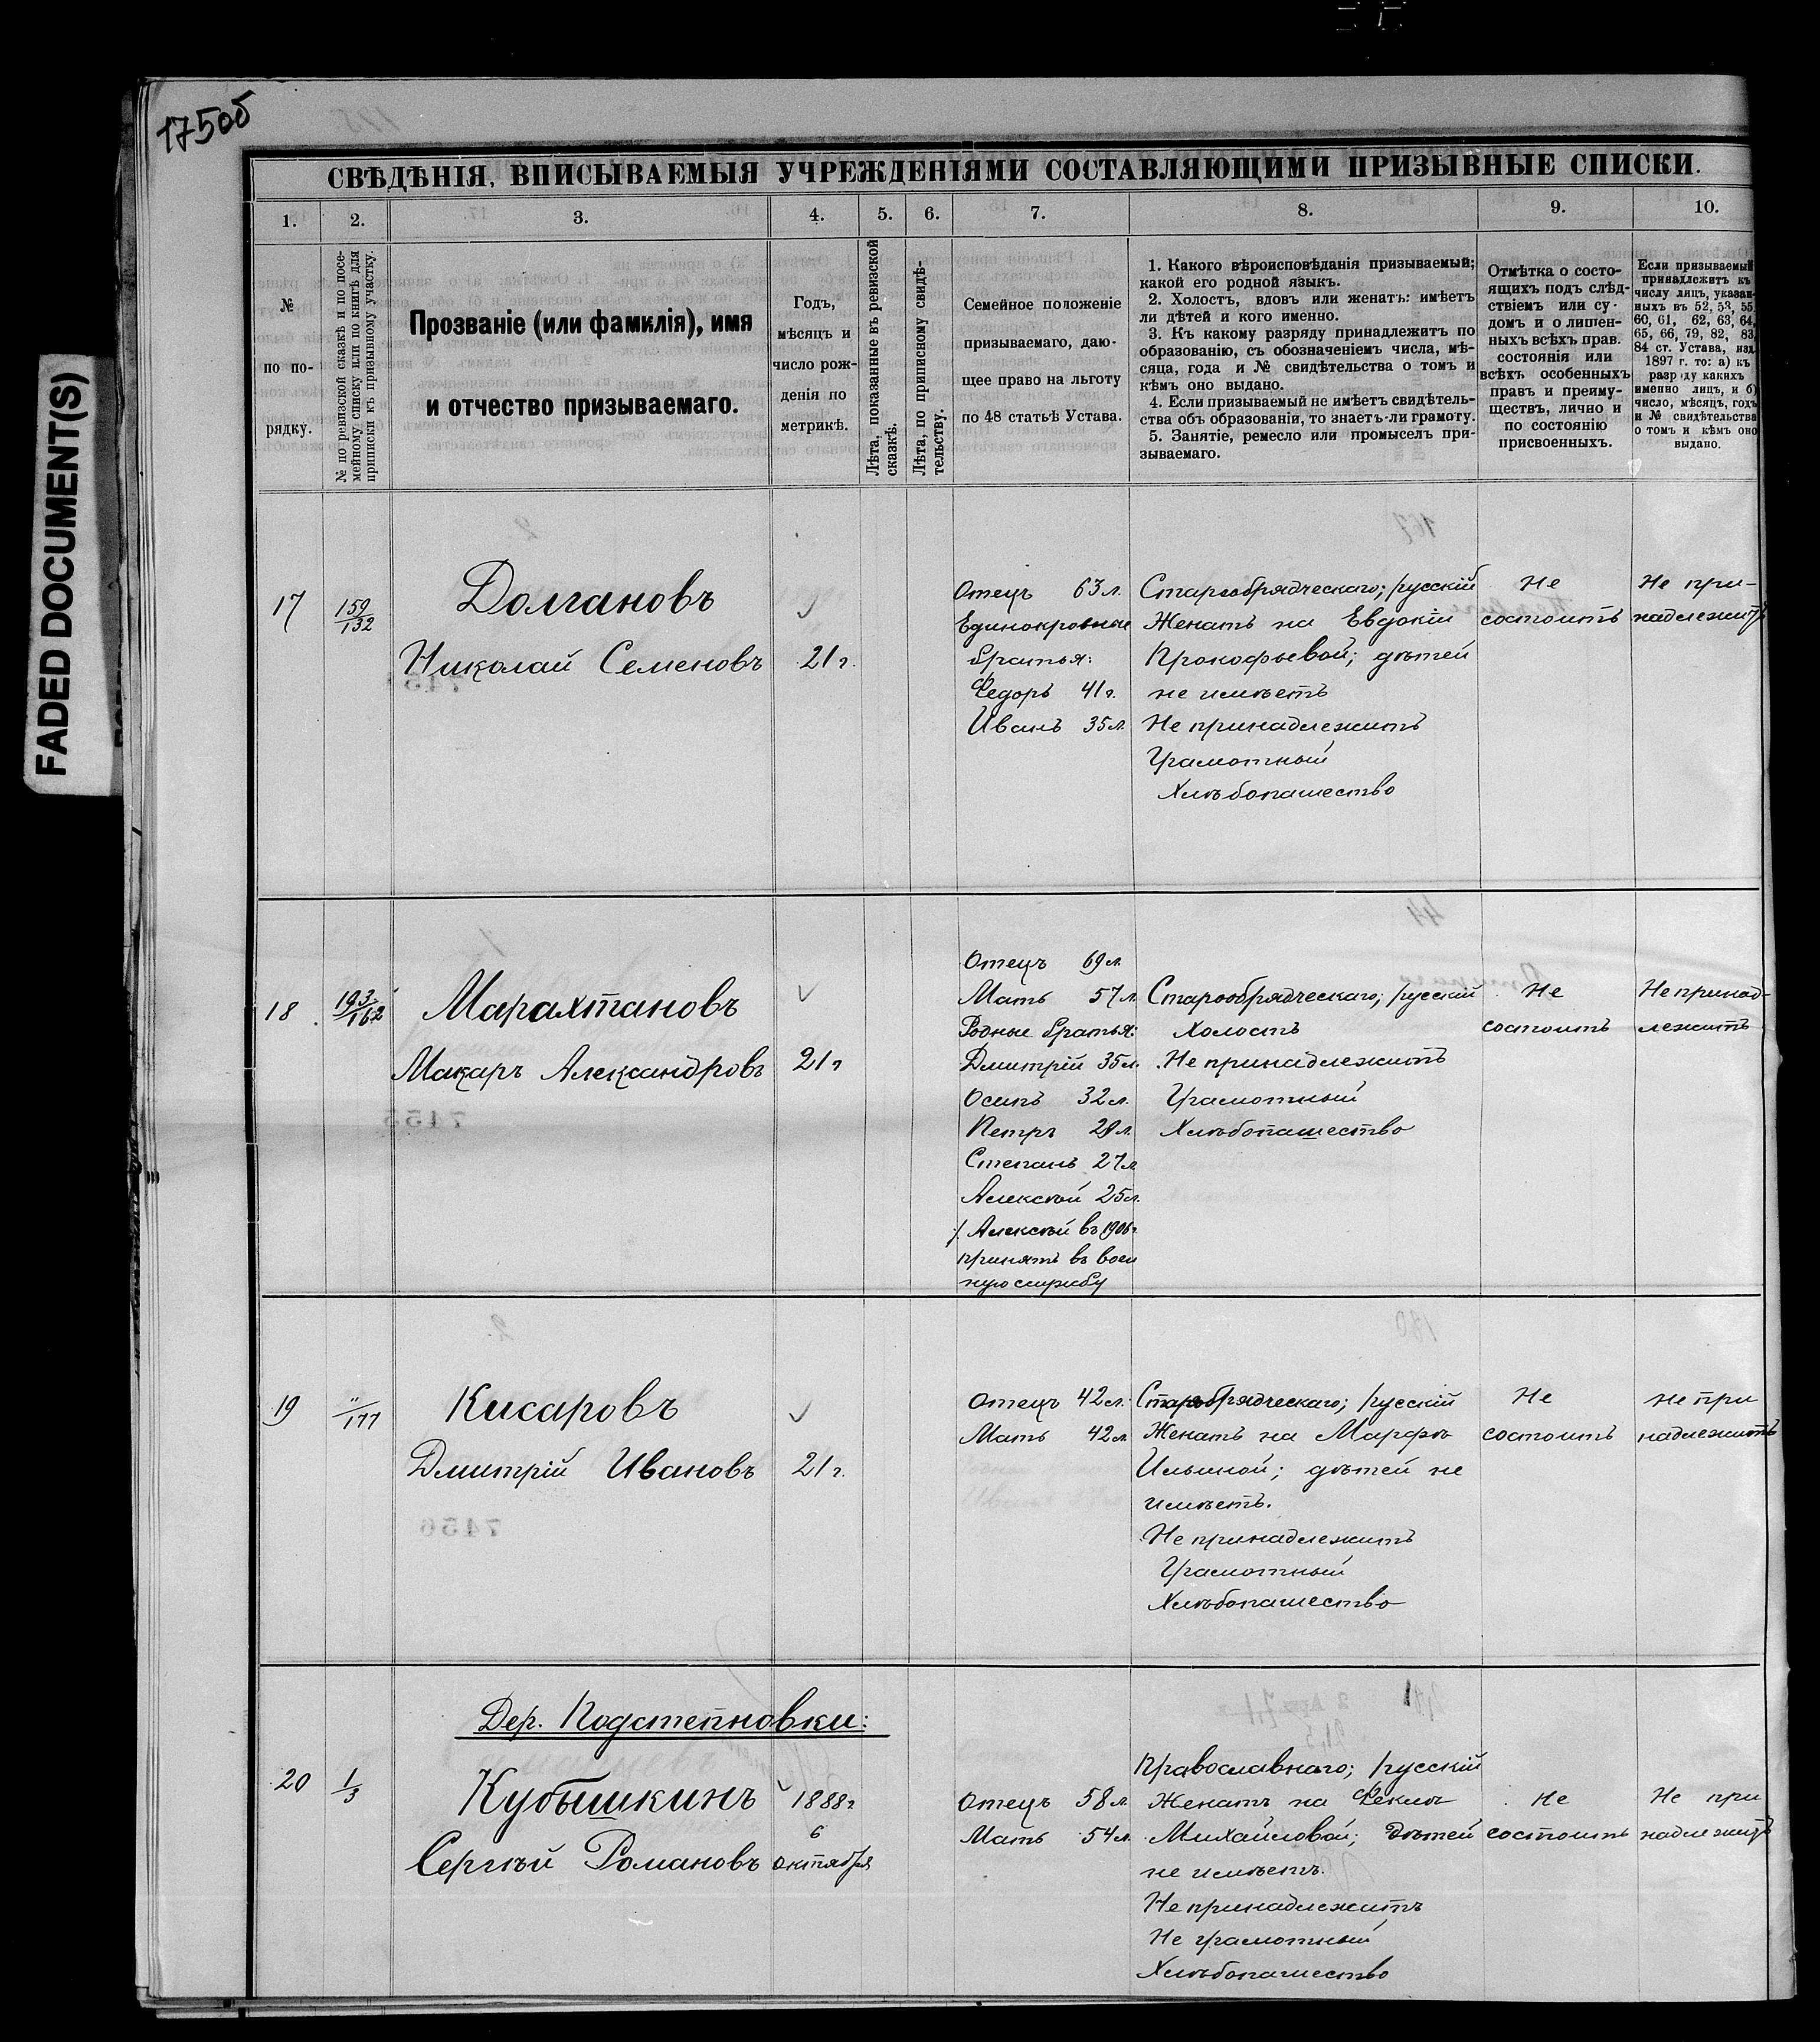 175об
FADED DOCUMENT(S)
СВѢДѢНІЯ, ВПИСЫВАЕМЫЯ УЧРЕЖДЕНІЯМИ СОСТАВЛЯЮЩИМИ ПРИЗЫВНЫЕ СПИСКИ.
1. 2. 3. 4. 5. 6. 7. 8. 9. 10.
№
по по-
рядку.
№ по ревизской сказкѣ и по посе-
мейному списку или по книгѣ для
приписки къ призывному участку.
Прозваніе (или фамилія), имя
и отчество призываемаго.
Годъ,
мѣсяцъ и
число рож-
денія по
метрикѣ.
Лѣта, показанныя въ ревизской
сказкѣ.
Лѣта, по приписному свидѣ-
тельству.
Семейное положеніе
призываемаго, даю-
щее право на льготу
по 48 статьѣ Устава.
1. Какого вѣроисповѣданія призываемый;
какой его родной языкъ.
2. Холостъ, вдовъ или женатъ: имѣетъ
ли дѣтей и кого именно.
3. Къ какому разряду принадлежитъ по
образованію, съ обозначеніемъ числа, мѣ-
сяца, года и № свидѣтельства о томъ и
кѣмъ оно выдано.
4. Если призываемый не имѣетъ свидѣтель-
ства объ образованіи, то знаетъ-ли грамоту.
5. Занятіе, ремесло или промыселъ при-
зываемаго.
Отмѣтка о состо-
ящихъ подъ слѣд-
ствіемъ или су-
домъ и о лишен-
ныхъ всѣхъ прав.
состоянія или
всѣхъ особенныхъ
правъ и преиму-
ществъ, лично и
по состоянію
присвоенныхъ.
Если призываемый
принадлежитъ къ
числу лицъ, указан-
ныхъ въ 52, 53, 55,
60, 61, 62, 63, 64,
65, 66, 79, 82, 83,
84 ст. Устава, изд.
1897 г. то: а) къ
разряду какихъ
именно лицъ, и б)
число, мѣсяцъ, годъ
и № свидѣтельства
о томъ и кѣмъ оно
выдано.
17
159/132
Долгановъ
Николай Семеновъ
21 г.
Отецъ 63 л.
Единокровные
братья:
Федоръ 41 г.
Иванъ 35 л.
Старообрядческаго; русскій
Женатъ на Евдокіи
Прокофьевой; дѣтей
не имѣетъ
Не принадлежитъ
Грамотный
Хлѣбопашество
Не
состоитъ
Не при-
надлежитъ
18
193/162
Марахтановъ
Макаръ Александровъ
21 г
Отецъ 69 л.
Мать 57 л
Родные братья:
Дмитрій 35 л.
Осипъ 32 л.
Петръ 29 л.
Степанъ 27 л
Алексѣй 25 л.
/. Алексѣй въ 1906 г
принятъ въ воен
ную службу
Старообрядческаго; русскій
Холостъ
Не принадлежитъ
Грамотный
Хлѣбопашество
Не
состоитъ
Не принад-
лежитъ
19
"/177
Кисаровъ
Дмитрій Ивановъ
21 г.
Отецъ 42 л.
Мать 42 л
Старобрядческаго; русскій
Женатъ на Марфѣ
Ильиной; дѣтей не
имѣетъ.
Не принадлежитъ
Грамотный
Хлѣбопашество
Не
состоитъ
Не при
надлежитъ
Дер. Подстепновки:
20
1/3
Кубышкинъ
Сергѣй Романовъ
1888 г
6
октября
Отецъ 58 л
Мать 54 л.
Православнаго; русскій
Женатъ на Феклѣ
Михайловой; дѣтей
не имѣетъ.
Не принадлежитъ
Не грамотный
Хлѣбопашество
Не
состоитъ
Не при
надлежитъ